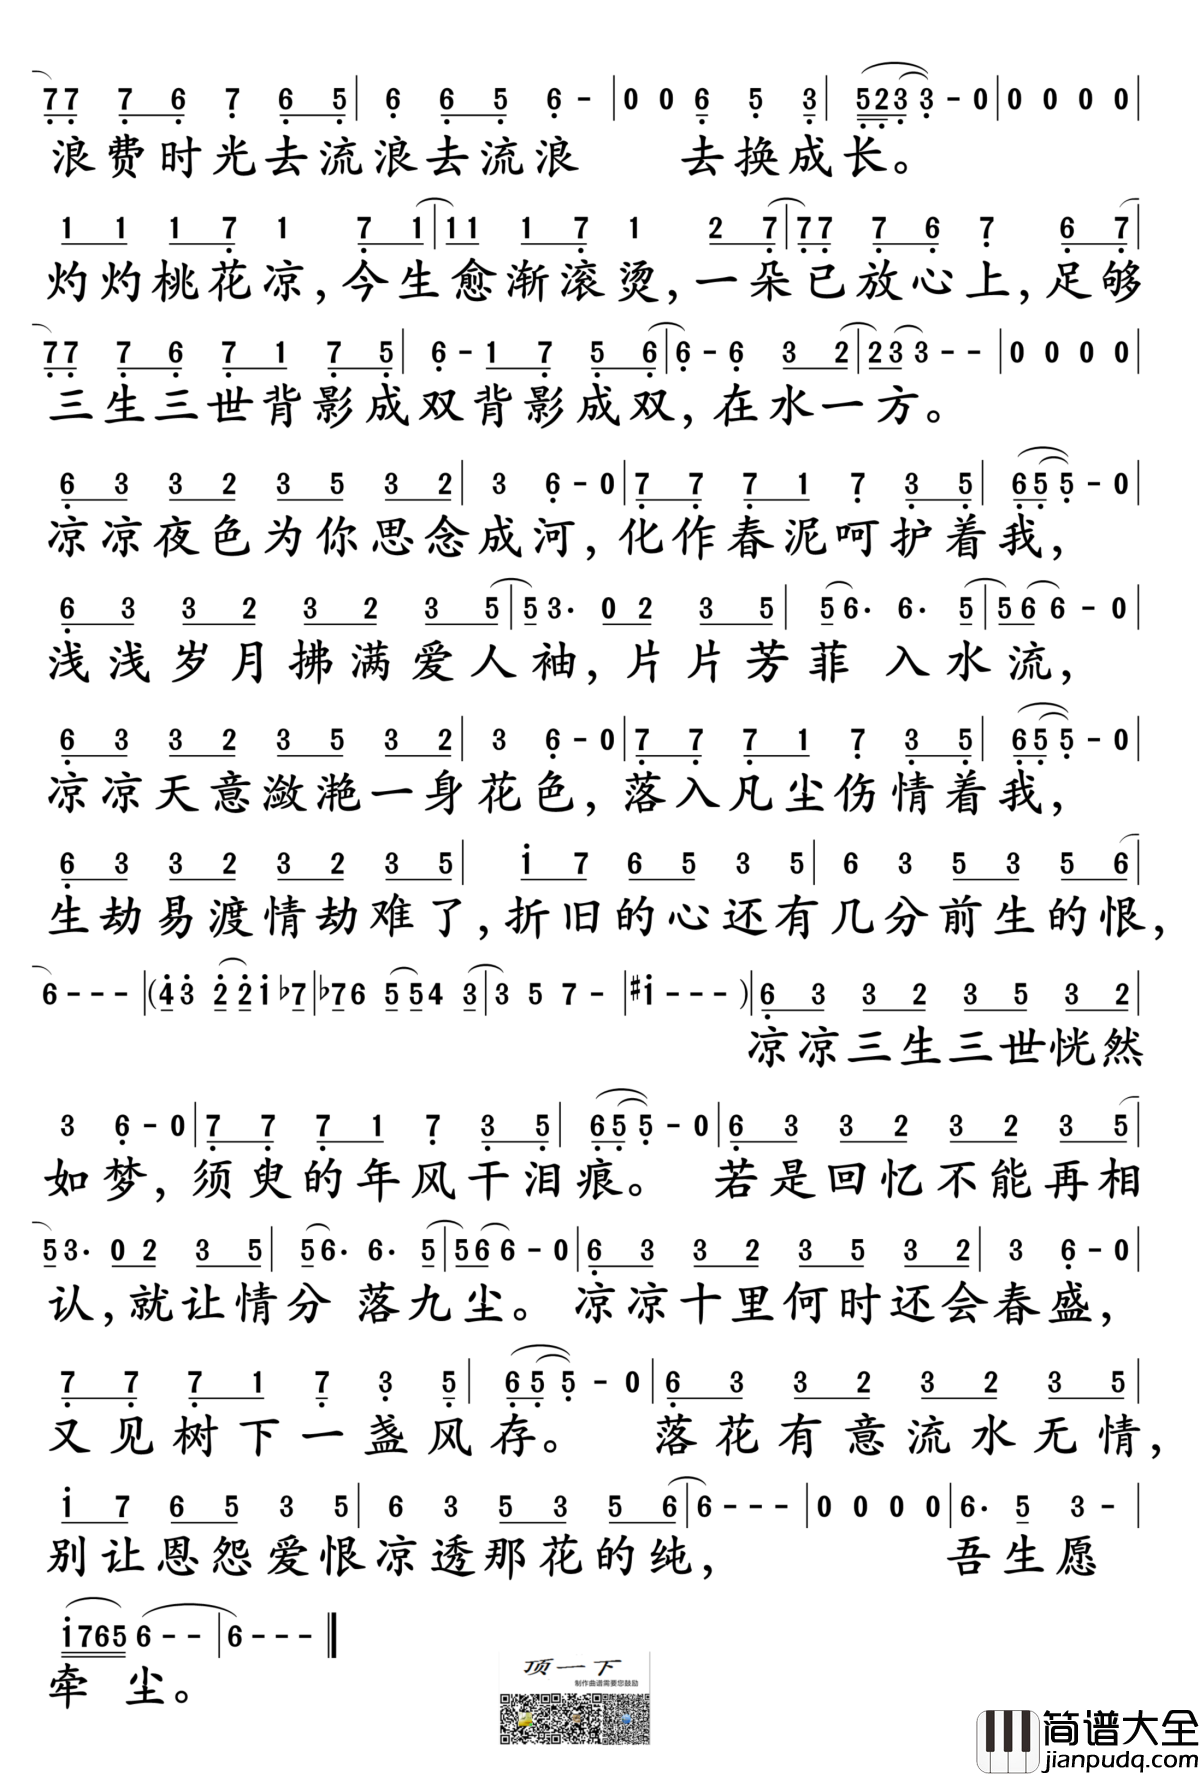 7 7 7 6 7 6 5 | 6 6 5 6 - | 0 0 6 5 3 | 5 2 3 3 - 0 | 0 0 0 0 |
浪费时光去流浪去流浪 去换成长。
1 1 1 7 1 7 1 | 1 1 1 7 1 2 7 | 7 7 7 6 7 6 7 |
灼灼桃花凉,今生愈渐滚烫,一朵已放心上,足够
7 7 7 6 7 1 7 5 | 6 - 1 7 5 6 | 6 - 6 3 2 | 2 3 3 - - | 0 0 0 0 |
三生三世背影成双背影成双,在水一方。
6 3 3 2 3 5 3 2 | 3 6 - 0 | 7 7 7 1 7 3 5 | 6 5 5 - 0 |
凉凉夜色为你思念成河,化作春泥呵护着我,
6 3 3 2 3 2 3 5 | 5 3. 0 2 3 5 | 5 6. 6. 5 | 5 6 6 - 0 |
浅浅岁月拂满爱人袖,片片芳菲 入水流,
6 3 3 2 3 5 3 2 | 3 6 - 0 | 7 7 7 1 7 3 5 | 6 5 5 - 0 |
凉凉天意潋滟一身花色,落入凡尘伤情着我,
6 3 3 2 3 2 3 5 | i 7 6 5 3 5 | 6 3 5 3 5 6 |
生劫易渡情劫难了,折旧的心还有几分前生的恨,
6 - - - | (4 3 2 2 i b7 | b7 6 5 5 4 3 | 3 5 7 - | #i - - - ) | 6 3 3 2 3 5 3 2 |
凉凉三生三世恍然
3 6 - 0 | 7 7 7 1 7 3 5 | 6 5 5 - 0 | 6 3 3 2 3 2 3 5 |
如梦,须臾的年风干泪痕。 若是回忆不能再相
5 3. 0 2 3 5 | 5 6. 6. 5 | 5 6 6 - 0 | 6 3 3 2 3 5 3 2 | 3 6 - 0 |
认,就让情分 落九尘。凉凉十里何时还会春盛,
7 7 7 1 7 3 5 | 6 5 5 - 0 | 6 3 3 2 3 2 3 5 |
又见树下一盏风存。 落花有意流水无情,
i 7 6 5 3 5 | 6 3 5 3 5 6 | 6 - - - | 0 0 0 0 | 6. 5 3 - |
别让恩怨爱恨凉透那花的纯, 吾生愿
i 7 6 5 6 - - | 6 - - - ‖
牵 尘。
顶一下
制作曲谱需要您鼓励
简谱大全
jianpudq.com